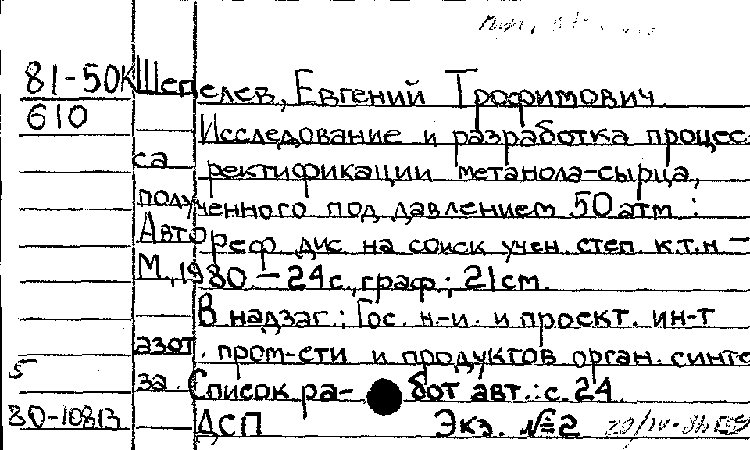 81-50К Шепелев, Евгений Трофимович
610
Исследование и разработка процес-
са ректификации метанола-сырца,
полученного под давлением 50 атм :
Автореф. дис. на соиск учен. степ. к.т.н –
М., 1980. – 24 с., граф.; 21 см.
В надзаг.: Гос. н-и. и проект. ин-т
азот. пром-сти и продуктов орган. синте-
5
за. Список ра- бот авт.: с. 24.
80-10813 ДСП Экз. №2